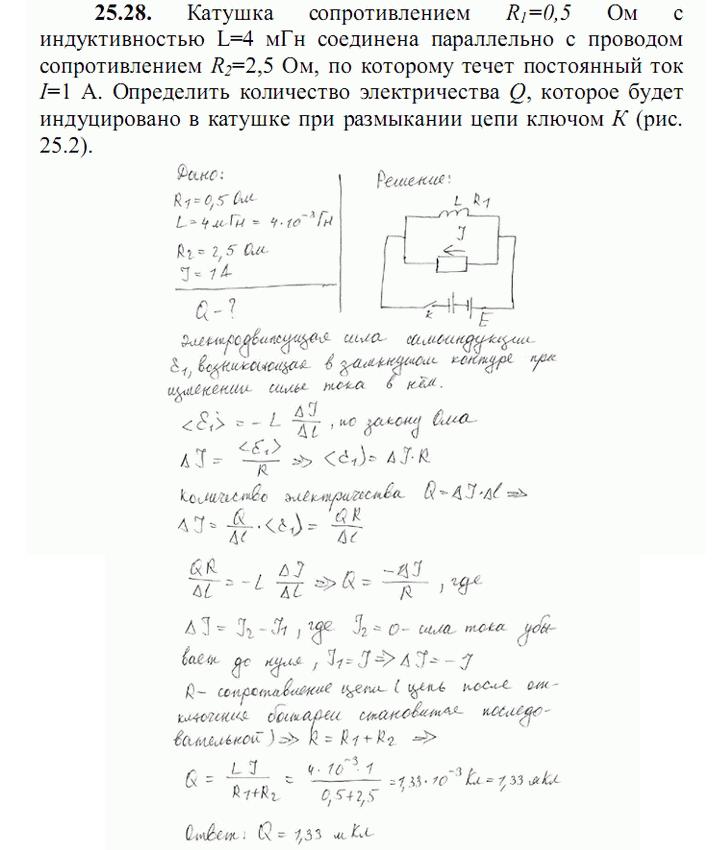 25.28. Катушка сопротивлением R₁=0,5 Ом с
индуктивностью L=4 мГн соединена параллельно с проводом
сопротивлением R₂=2,5 Ом, по которому течет постоянный ток
I=1 А. Определить количество электричества Q, которое будет
индуцировано в катушке при размыкании цепи ключом К (рис.
25.2).
Дано:
R₁=0,5 Ом
L=4мГн = 4·10⁻³Гн
R₂=2,5 Ом
J=1А
Q-?
Решение:
L R₁
J
K E
Электродвижущая сила самоиндукции
ℰ₁, возникающая в замкнутом контуре при
изменении силы тока в нём.
<ℰ₁> = - L ΔJ/Δt, по закону Ома
ΔJ = <ℰ₁>/R => <ℰ₁> = ΔJ·R
Количество электричества Q=ΔJ·Δt =>
ΔJ = Q/Δt · <ℰ₁> = QR/Δt
QR/Δt = - L ΔJ/Δt => Q = -ΔJ/R, где
ΔJ = J₂-J₁, где J₂=0- сила тока убы-
вает до нуля, J₁=J => ΔJ=-J
R- сопротивление цепи (цепь после от-
ключения батареи становится последо-
вательной) => R=R₁+R₂ =>
Q = LJ/R₁+R₂ = 4·10⁻³·1/0,5+2,5 = 1,33·10⁻³Кл = 1,33 мКл
Ответ: Q = 1,33 мКл